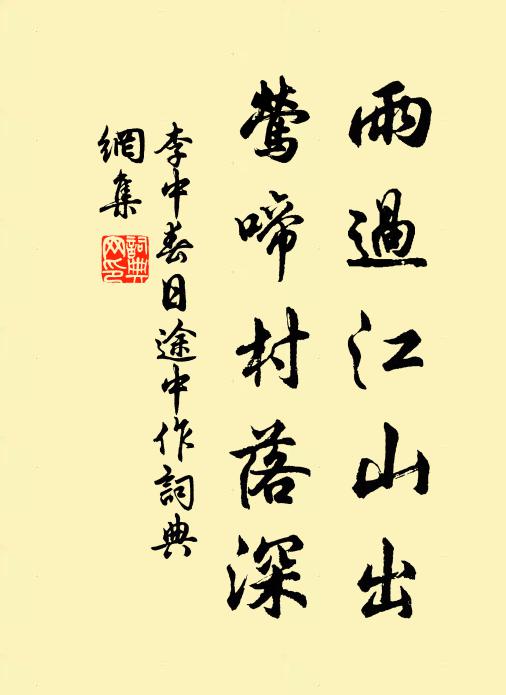 雨過江山出
鶯啼村落深
李中春日途中作詞典
網集
詞典
网印